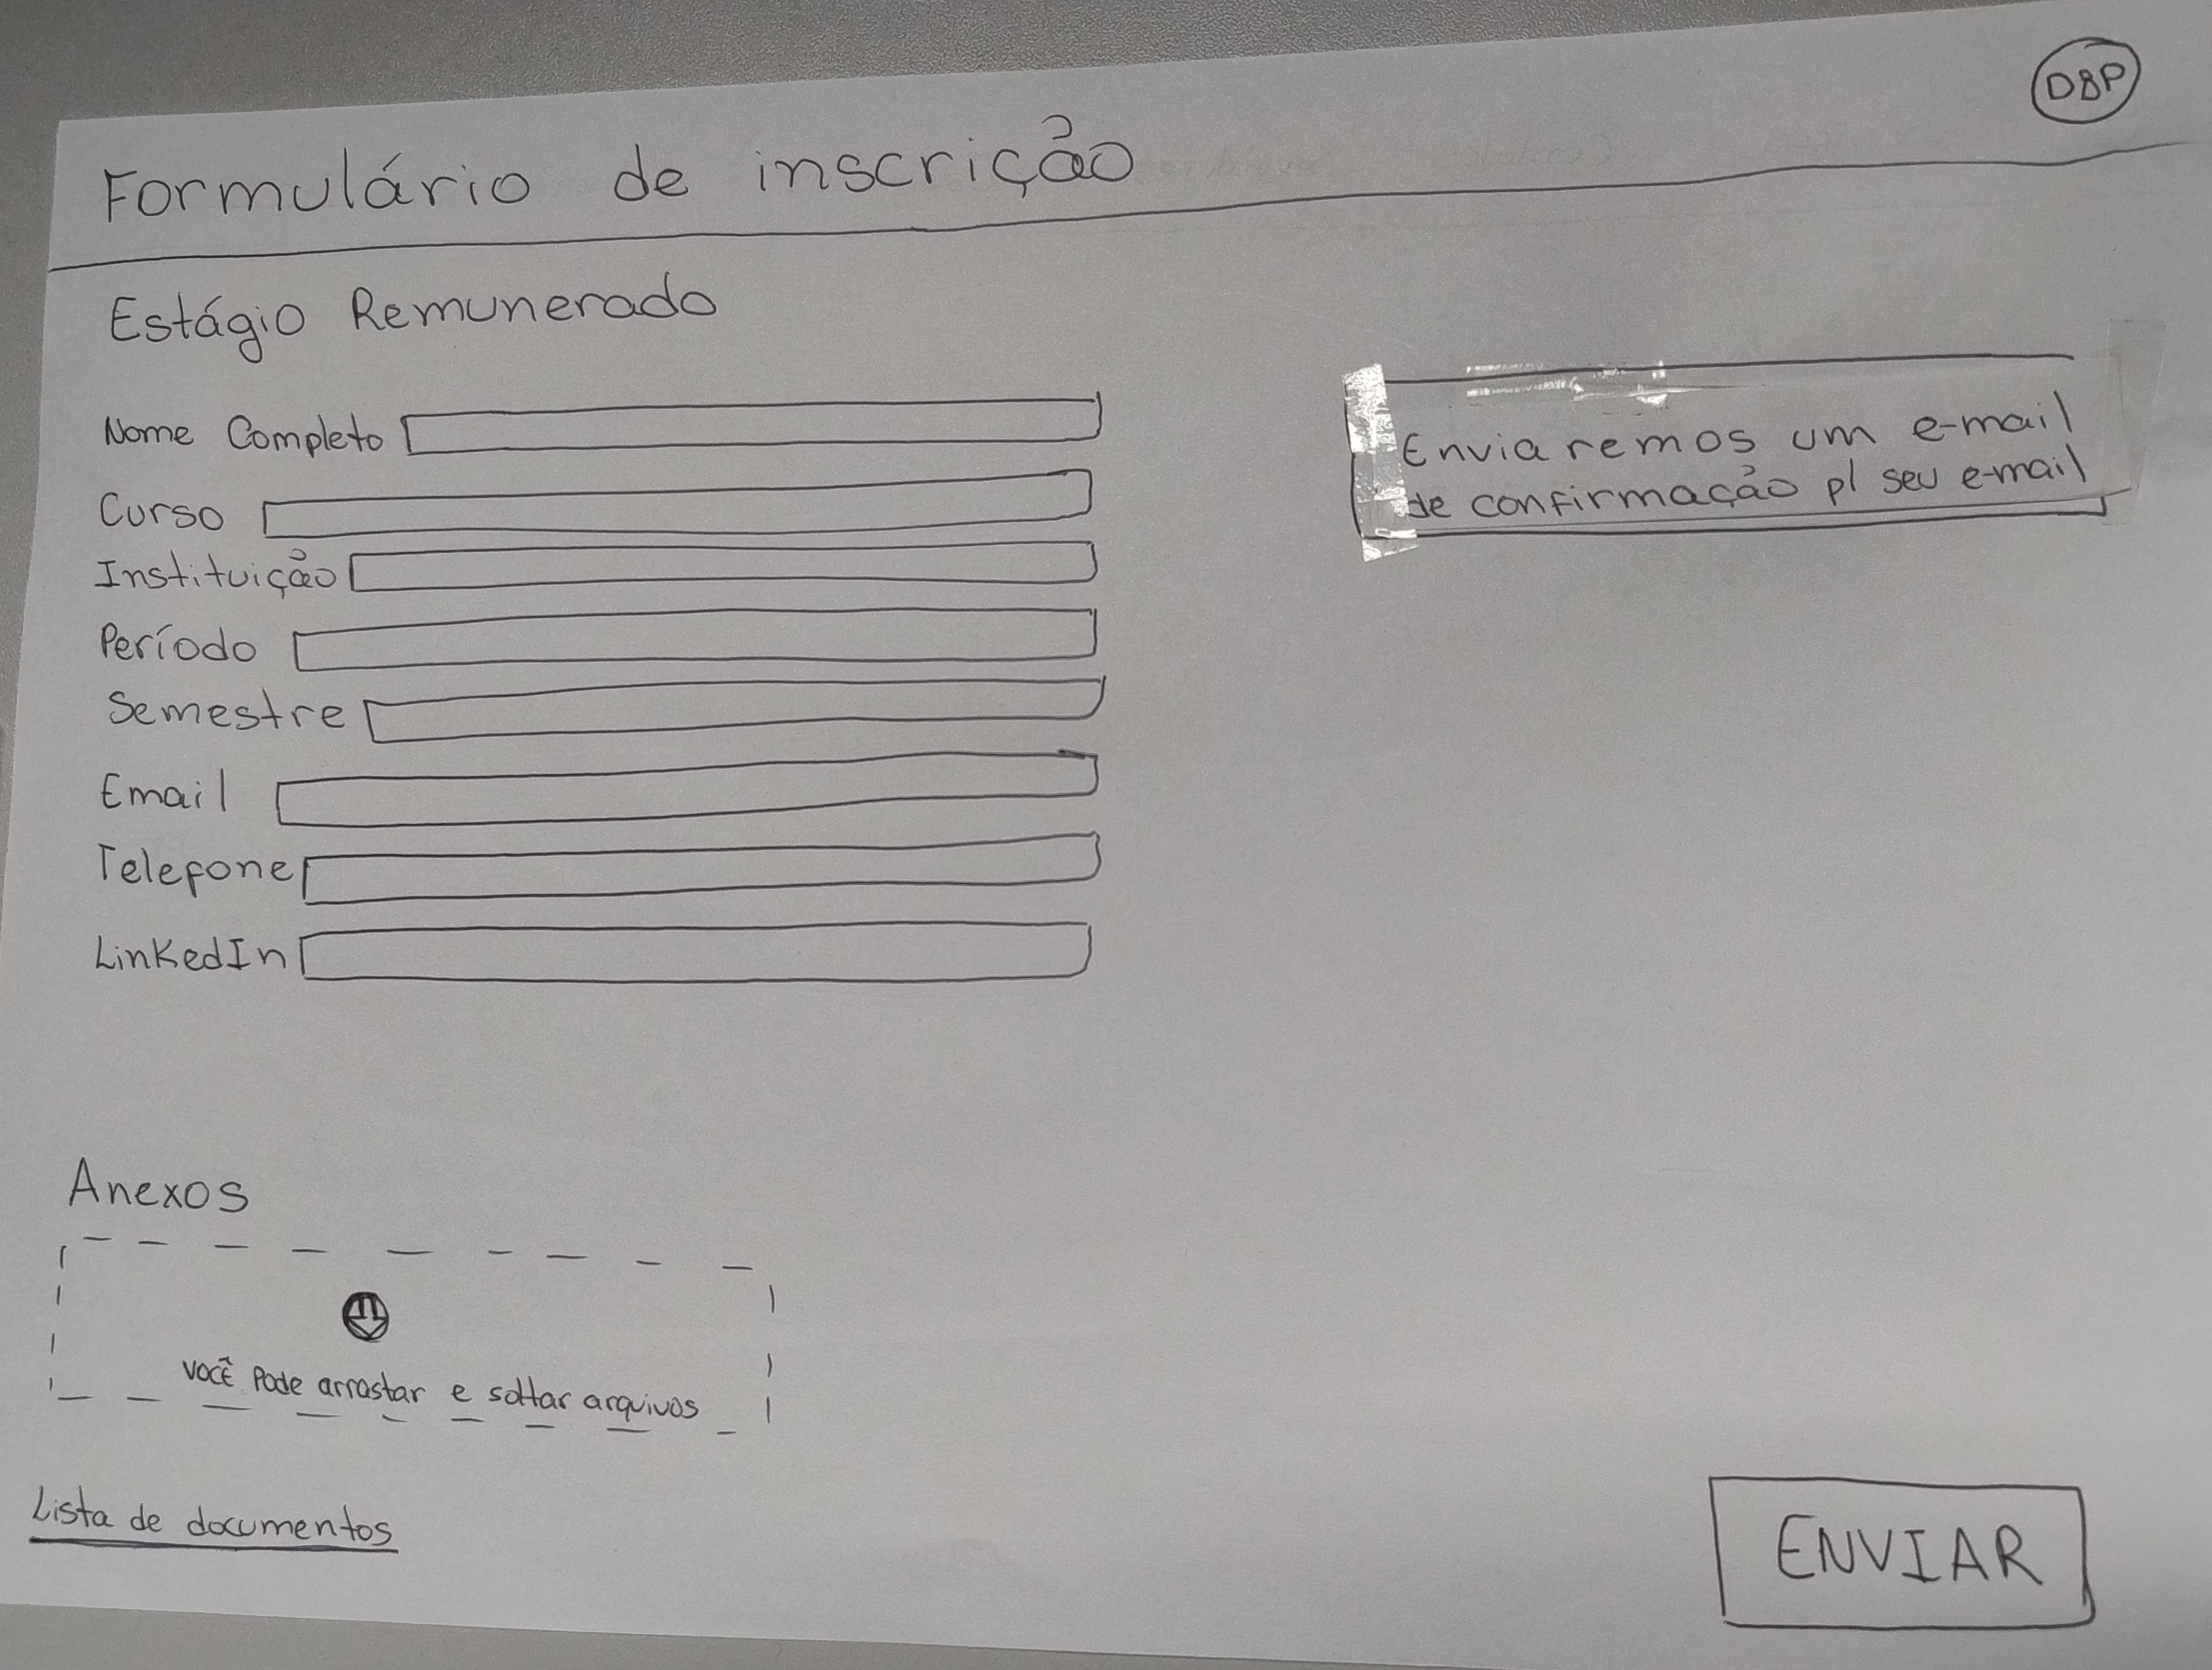 DBP
Formulário de inscrição
Estágio Remunerado
Nome Completo
Curso
Instituição
Período
Semestre
Email
Telefone
LinkedIn
Enviaremos um e-mail
de confirmação p/ seu e-mail
Anexos
VOCÊ Pode arrastar e soltar arquivos
Lista de documentos
ENVIAR